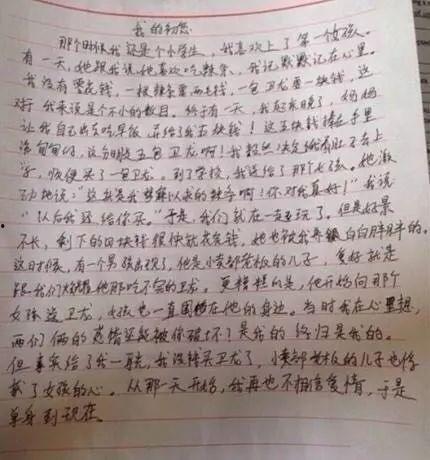 我的初恋
那个时候我还是个小学生，我喜欢上了第一个女孩。
有一天，她跟我说她喜欢吃辣条，我记默默记在心里。
我没有零花钱，一根辣条两毛钱，一包卫龙要一块钱，这
对于我来说是个不小的数目。终于有一天，我起床晚了，妈妈
让我自己出去吃早饭，并给了我五块钱！这五块钱揣在手里
沉甸甸的，这分明是五包卫龙啊！我毅然决然饿着肚子去上
学，顺便买了一包卫龙。到了学校，我送给了那个女孩。她激
动地说：“这就是我梦寐以求的辣条啊！你对我真好！”我说
“以后我还给你买。”于是，我们就在一起玩了。但是好景
不长，剩下的四块钱很快就花完，她也被我养得白白胖胖的。
这时候，有一个男孩出现了，他是小卖部老板的儿子，爱好就是
跟我们炫耀他那吃不完的卫龙。更糟糕的是，他开始向那个
女孩送卫龙，女孩也一直围绕在他的身边。当时我在心里想，
我们俩的感情岂能被你破坏？是我的终归是我的。
但事实给了我一耳光，我没钱买卫龙了，小卖部老板的儿子也俘
获了女孩的心。从那一天开始，我再也不相信爱情，于是
单身到现在。